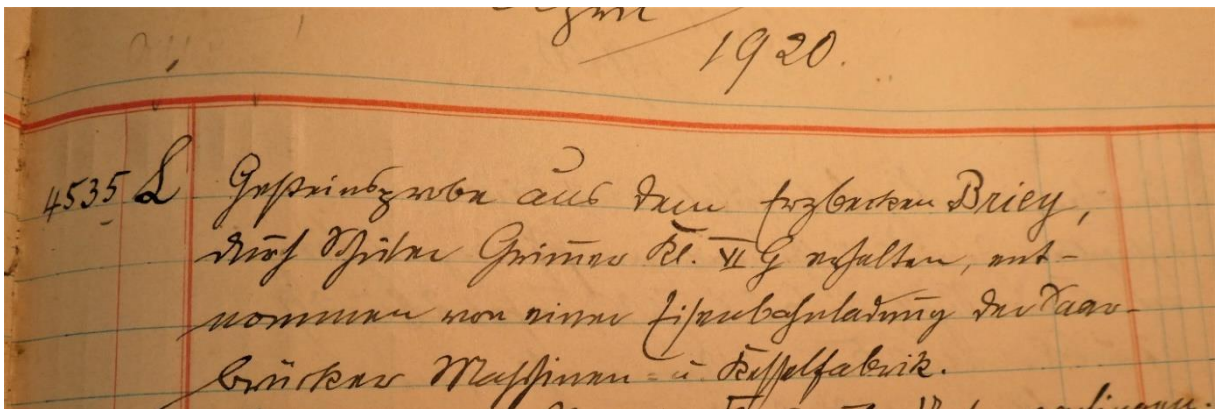 1920.
4535 L Gesteinsprobe aus dem Erzbecken Briey,
durch Schüler Grimmer Kl. VI G erhalten, ent-
nommen von einer Eisenbahnladung der Saar-
brücker Maschinen- u. Kesselfabrik.